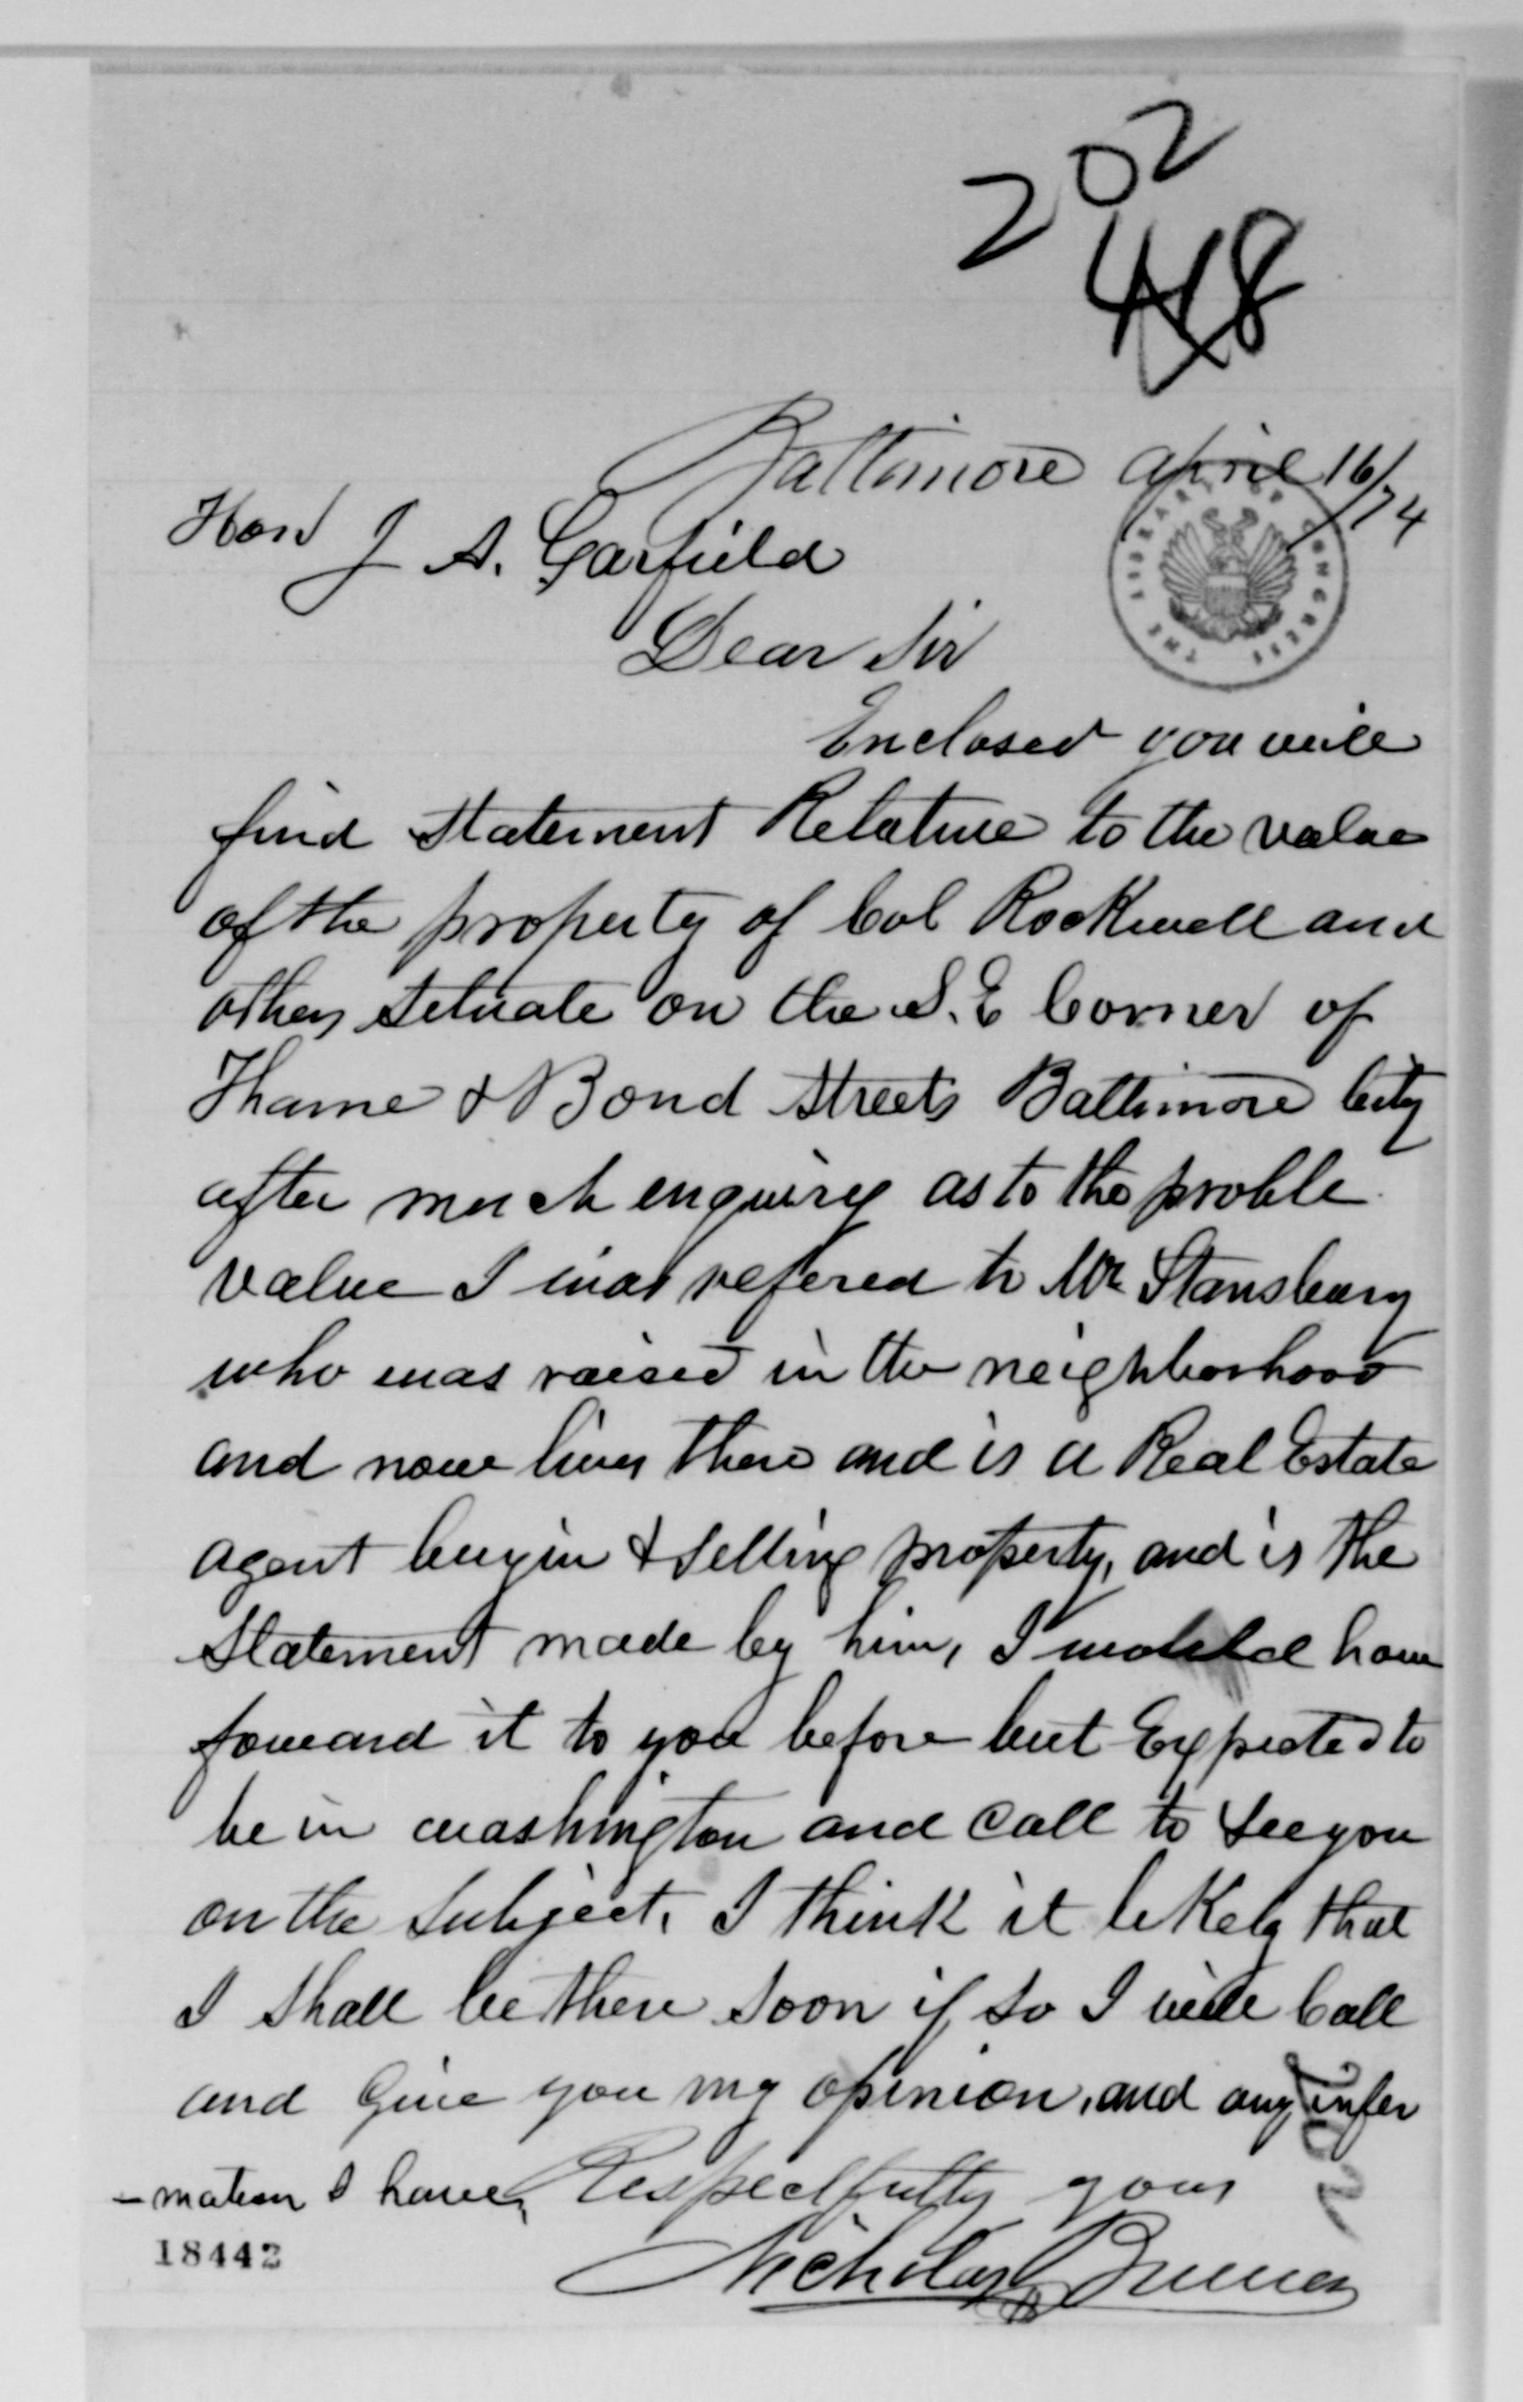 202
448
Baltimore April 16/74
Hon J A. Garfield
Dear Sir
THE LIBRARY OF CONGRESS
Enclosed you will
find Statement Relative to the value
of the property of Col Rockwell and
others situate on the S. E Corner of
Thame & Bond Streets Baltimore City
after much enquirey as to the proble
value I was refered to Mr Stansbury
who was raised in the neighborhood
and now lives there and is a Real Estate
agent buyin & Selling property, and is the
Statement made by him, I would have
foward it to you before but Expected to
be in washington and Call to See you
on the Subject. I think it likely that
I Shall be there Soon if So I will Call
and Give you my opinion, and any infor
-mation I have, Respectfully yours
18442
Nicholas
202